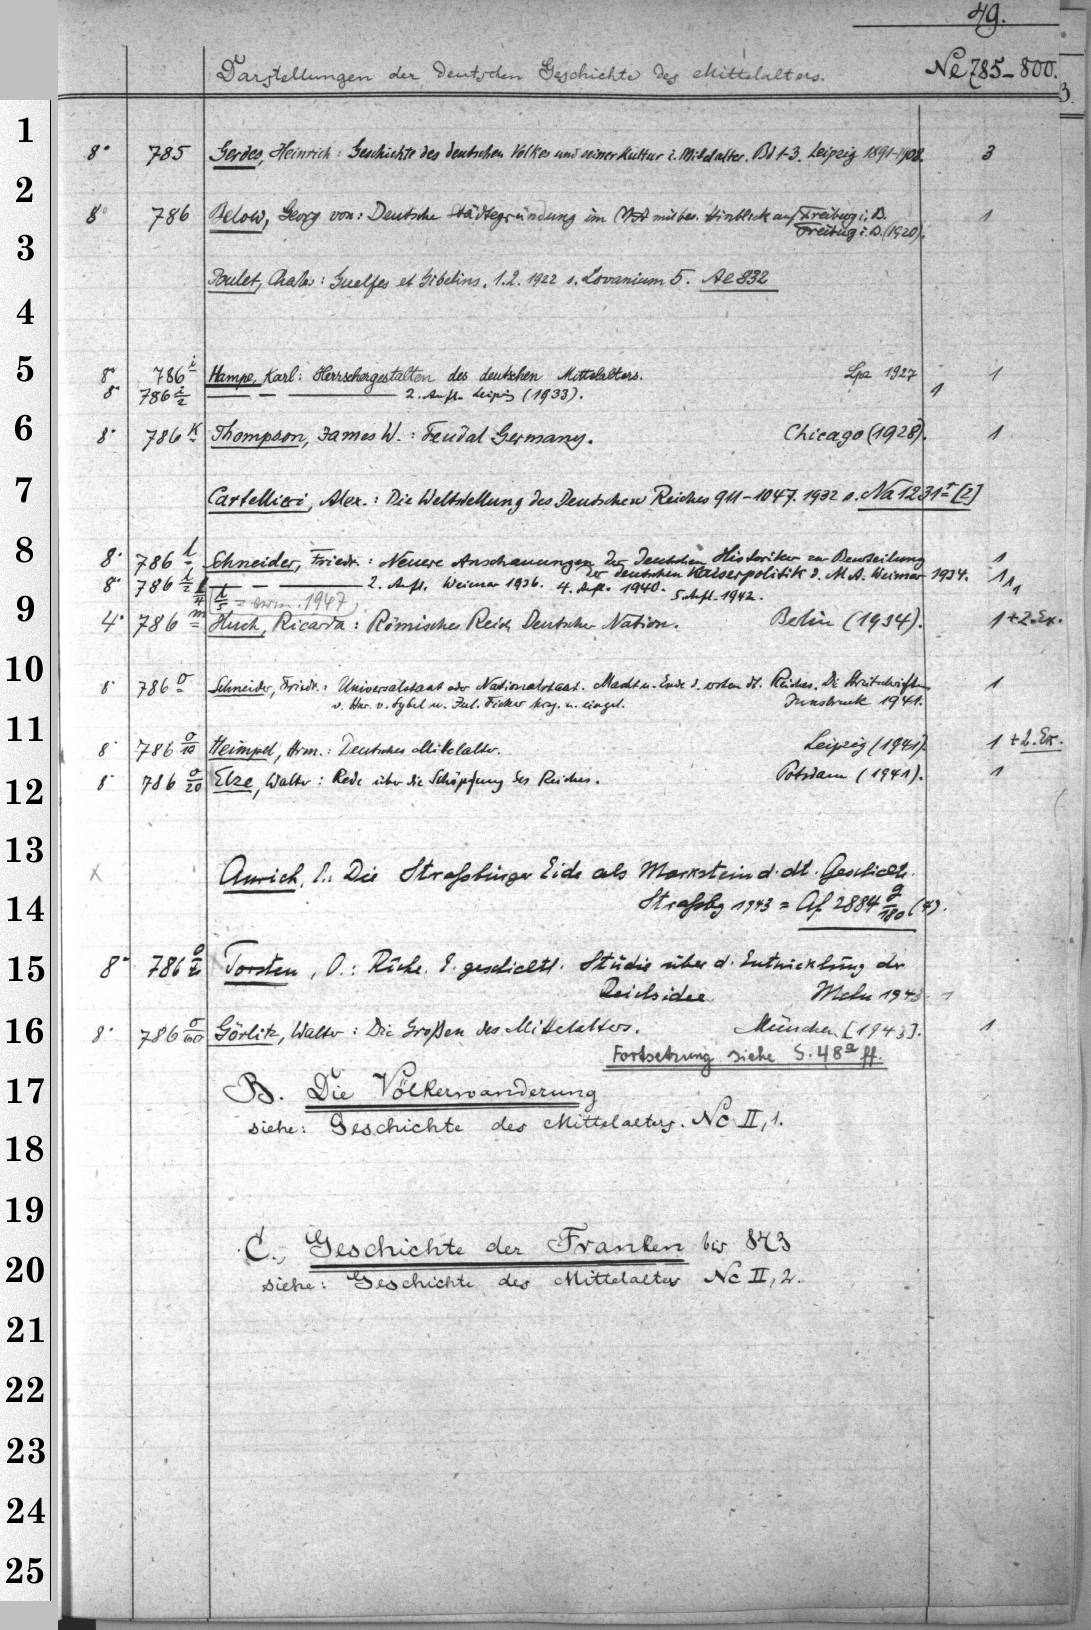 49.
Darstellungen der deutschen Geschichte des Mittelalters. Ne 785–800.
1
8° 785 Gerdes, Heinrich: Geschichte des deutschen Volkes und seiner Kultur i. Mittelalter. Bd 1-3. Leipzig 1891-1908. 3
2
8° 786 Below, Georg von: Deutsche Städtegründung im MA mit bes. Hinblick auf Freiburg i. B.
Freiburg i. B. (1920). 1
3
Poulet, Charles: Guelfes et Gibelins. 1.2. 1922 s. Lovanium 5. Ae 832
4
5
8° 786 i Hampe, Karl: Herrschergestalten des deutschen Mittelalters. Lpz 1927 1
8° 786 i/2 2. Aufl. Leipzig (1933). 1
6
8° 786 k Thompson, James W.: Feudal Germany. Chicago (1928). 1
7
Cartellieri, Alex.: Die Weltstellung des Deutschen Reiches 911–1047. 1932 s. Na 1231 r [2]
8
8° 786 l Schneider, Friedr.: Neuere Anschauungen der Deutschen Historiker zur Beurteilung 1
der deutschen Kaiserpolitik d. M. A. Weimar 1934.
8° 786 l/2 l/4 2. Aufl. Weimar 1936. 4. Aufl. 1940. 5. Aufl. 1942. 1 1 1
l/5 = 1947
9
4° 786 m Huch, Ricarda: Römisches Reich Deutscher Nation. Berlin (1934). 1 + 2. Ex.
10
8° 786 o Schneider, Friedr.: Universalstaat oder Nationalstaat. Macht u. Ende d. ersten dt. Reiches. Die Streitschriften 1
v. Hnr. v. Sybel u. Jul. Ficker hrsg. u. eingel. Innsbruck 1941.
11
8° 786 o/10 Heimpel, Hrm.: Deutsches Mittelalter. Leipzig (1941). 1 + 2. Ex.
12
8° 786 o/20 Elze, Walter: Rede über die Schöpfung des Reiches. Potsdam (1941). 1
13
x Anrich, E.: Die Straßburger Eide als Markstein d. dt. Geschichte.
14
Straßbg 1943 = Af 2884 g/180 (4).
15
8° 786 Torsten, O.: Riche. E. geschichtl. Studie über d. Entwicklung der
Reichsidee. Mchn 1943. 1
16
8° 786 o/60 Görlitz, Walter: Die Großen des Mittelalters. München [1943]. 1
Fortsetzung siehe S. 48a ff.
17
B. Die Völkerwanderung
siehe: Geschichte des Mittelalters. Nc II, 1.
18
19
C. Geschichte der Franken bis 843
20
siehe: Geschichte des Mittelalters Nc II, 2.
21
22
23
24
25